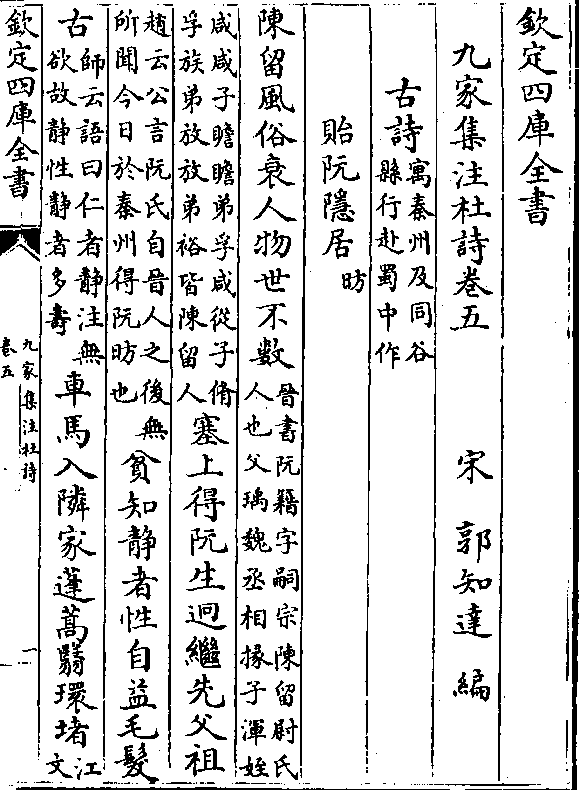 欽定四庫全書
九家集注杜詩卷五
宋 郭知達 編
古詩寓秦州及同谷
縣行赴蜀中作
貽阮隱居昉
陳留風俗衰人物世不數晉書阮籍字嗣宗陳留尉氏
人也父瑀魏丞相掾子渾姪
咸咸子瞻瞻弟孚咸從子脩
孚族弟放放弟裕皆陳留人塞上得阮生迥繼先父祖
趙云公言阮氏自晉人之後無
所聞今日於秦州得阮昉也貧知靜者性自益毛髮
古師云語曰仁者靜注無
欲故靜性靜者多壽車馬入隣家蓬蒿翳環堵江
文
欽定四庫全書
九家集注杜詩
卷五
一